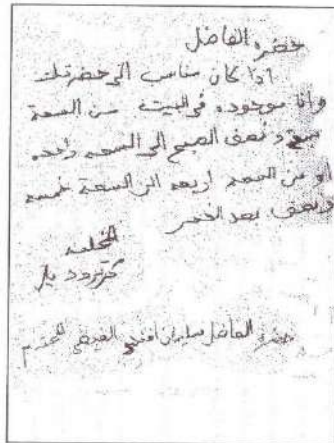 حضرة الفاضل
اذا كان مناسب الى حضرتك
وانا موجوده في البيت من السعة
سبع ونصف الصبح الى السعه واحده
او من السعه اربعه الى السعة خمسه
ونصف بعد الظهر
المخلصه
گرترود بل
حضرة الفاضل سليمان افندي المحترم